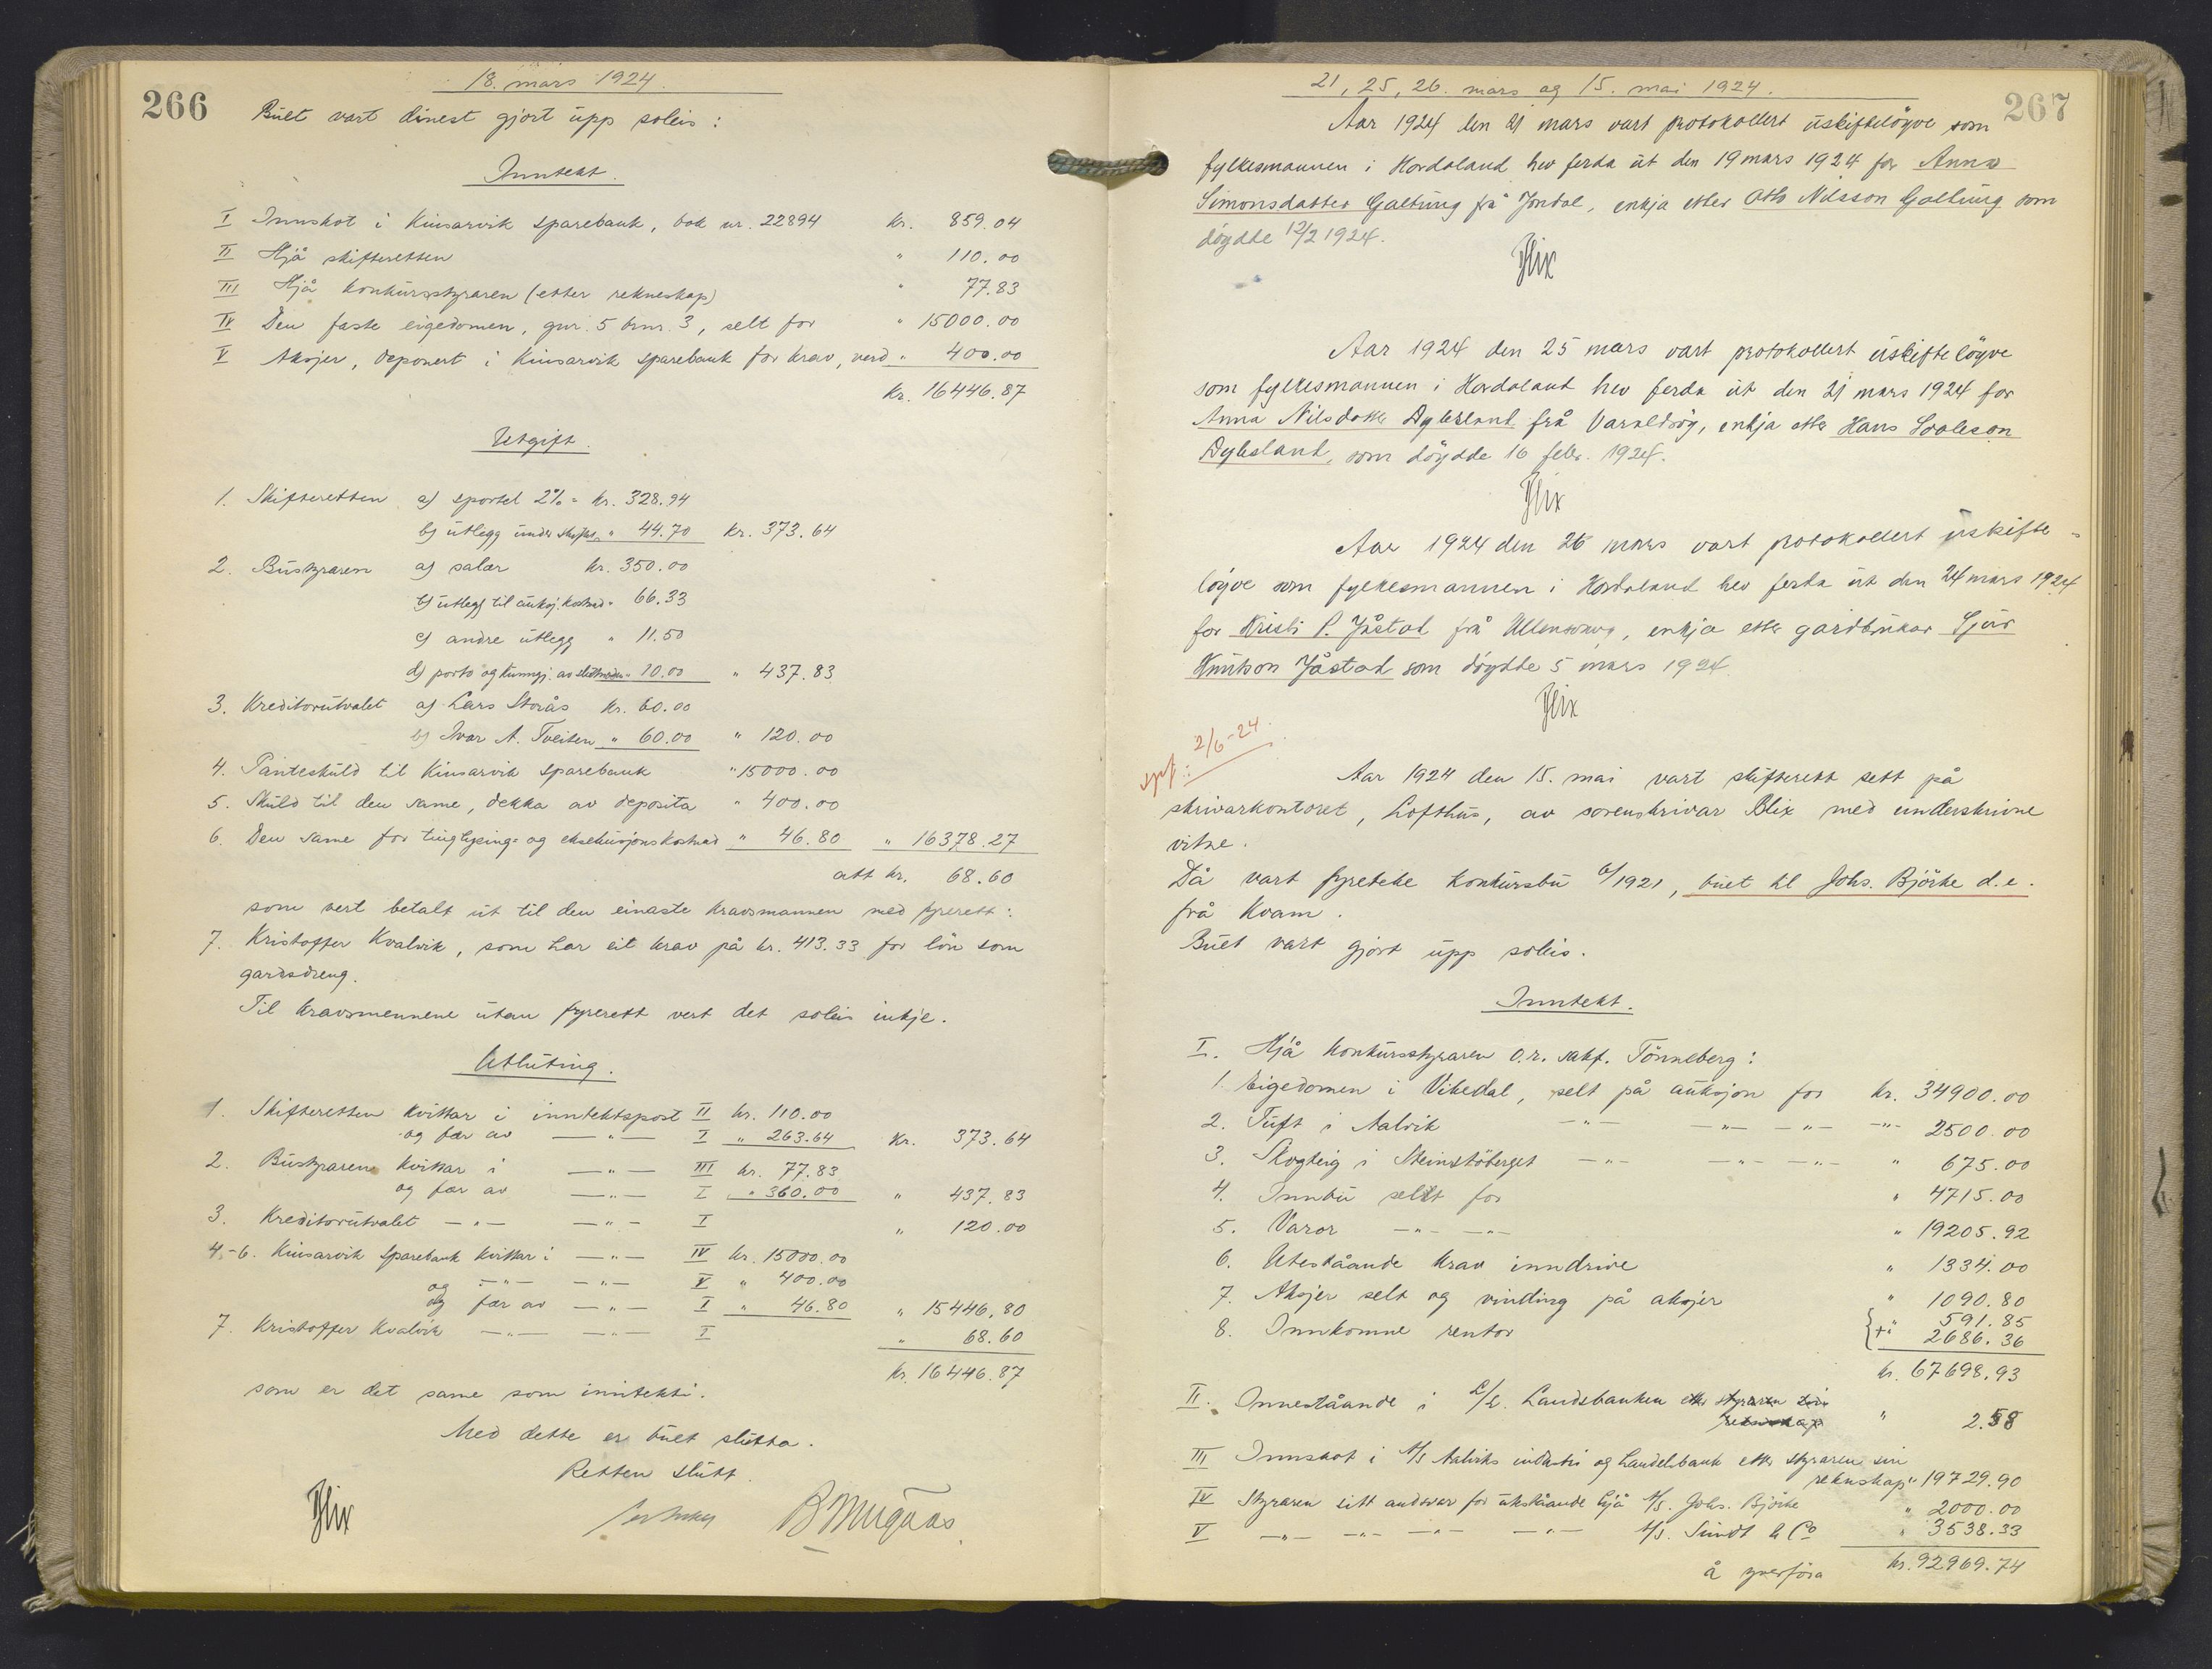 266
18. mars 1924.
Buet vart dinest gjort upp soleis:
Inntekt.
I Innskot i Kinsarvik sparebank, bok nr. 22894 kr. 859.04
II Hjå skifteretten " 110.00
III Hjå konkursstyraren (etter rekneskap) " 77.83
IV Den faste eigedomen, gnr. 5 bnr. 3, selt for " 15000.00
V Aksjer, deponert i Kinsarvik sparebank for krav, verd " 400.00
Kr. 16446.87
Utgift.
1. Skifteretten a) sportel 2% = kr. 328.94
b) utlegg under skiftet " 44.70 Kr. 373.64
2. Bustyraren a) salær kr. 350.00
b) utlegg til auksj. kostnad " 66.33
c) andre utlegg " 11.50
d) porto og kunngj. av " 10.00 " 437.83
3. Kreditorutvalet a) Lars Storås kr. 60.00
b) Ivar A. Tveiten " 60.00 " 120.00
4. Panteskuld til Kinsarvik sparebank " 15000.00
5. Skuld til den same, dekka av deposita " 400.00
6. Den same for tinglysing- og eksekusjonskostnad " 46.80 " 16378.27
att kr. 68.60
som vert betalt ut til den einaste kravsmannen med fyrerett:
7. Kristoffer Kvalvik, som har eit krav på kr. 413.33 for lön som
gardsdreng.
Til kravsmennene utan fyrerett vert det soleis inkje.
Utluting.
1. Skifteretten kvittar i inntektspost II kr. 110.00
og fær av — " — I " 263.64 Kr. 373.64
2. Bustyraren kvittar i — " — III kr. 77.83
og fær av — " — I " 360.00 " 437.83
3. Kreditorutvalet — " — — " — I " 120.00
4.-6. Kinsarvik Sparebank kvittar i — " — IV kr. 15000.00
og — " — — " — V " 400.00
og fær av — " — I " 46.80 " 15446.80
7. Kristoffer Kvalvik — " — — " — I " 68.60
kr. 16446.87
som er det same som inntekti.
Med dette er buet slutta.
Retten slutt.
Blix
B Mugaas.
267
21, 25, 26. mars og 15. mai 1924.
Aar 1924 den 21 mars vart protokollert uskiftelöyve som
fylkesmannen i Hordaland hev ferda ut den 19 mars 1924 for Anna
Simonsdatter Galtung frå Jondal, enkja etter Otto Nilsson Galtung som
döydde 12/2 1924.
Blix
Aar 1924 den 25 mars vart protokollert uskiftelöyve
som fylkesmannen i Hordaland hev ferda ut den 21 mars 1924 for
Anna Nilsdotter Dybesland frå Varaldsöy, enkja etter Hans
Dybesland, som döydde 16 febr. 1924.
Blix
Aar 1924 den 26 mars vart protokollert uskifte-
löyve som fylkesmannen i Hordaland hev ferda ut den 24 mars 1924
for Kristi P. Jåstad frå Ullensvang, enkja etter gardbrukar Sjur
Knutson Jåstad som döydde 5 mars 1924.
Blix
2/6-24.
Aar 1924 den 15. mai vart skifterett sett på
skrivarkontoret, Lofthus, av sorenskrivar Blix med underskrivne
vitne.
Då vart fyreteke Konkursbu 6/1921, buet til Johs. Björke d.e.
frå Kvam.
Buet vart gjort upp soleis.
Inntekt.
I. Hjå konkursstyraren o.r. sakf. Tönneberg:
1. Eigedomen i Vikedal, selt på auksjon for kr. 34900.00
2. Tuft i Aalvik — " — — " — — " — — " — 2500.00
3. Skogteig i Steinstöberget — " — — " — — " — " 675.00
4. Innbu selt for " 4715.00
5. Varor — " — — " — " 19205.92
6. Uteståande krav inndrive " 1334.00
7. Aksjer selt og vinding på aksjer " 1090.80
8. Innkomne rentor { " 591.85
+ " 2686.36
kr. 67698.93
II. Inneståande i A/S. Landsbanken etter styraren sin
rekneskap " 2.58
III Innskot i A/S Aalviks industri og handelsbank etter styraren sin
rekneskap " 19729.90
IV Styraren sitt andsvar for uteståande hjå A/S. Johs. Björke " 2000.00
V — " — — " — — " — — " — A/S. Sundt & Co " 3538.33
å yverföra kr. 92969.74